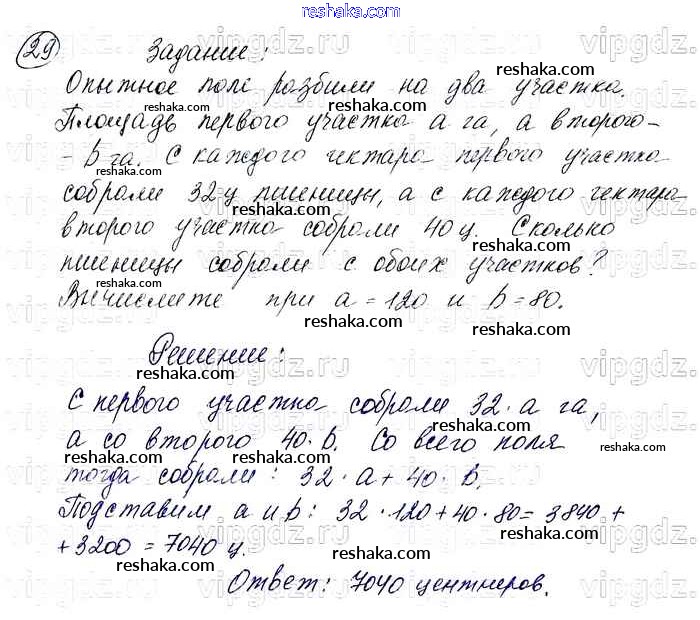 reshaka.com
29 Задание:
Опытное поле разбили на два участка.
Площадь первого участка a га, а второго -
- b га. С каждого гектара первого участка
собрали 32 ц пшеницы, а с каждого гектара
второго участка собрали 40 ц. Сколько
пшеницы собрали с обоих участков?
Вычислите при a = 120 и b = 80.
Решение:
С первого участка собрали 32 · a га,
а со второго 40 · b. Со всего поля
тогда собрали: 32 · a + 40 · b.
Подставим a и b: 32 · 120 + 40 · 80 = 3840 +
+ 3200 = 7040 ц.
Ответ: 7040 центнеров.